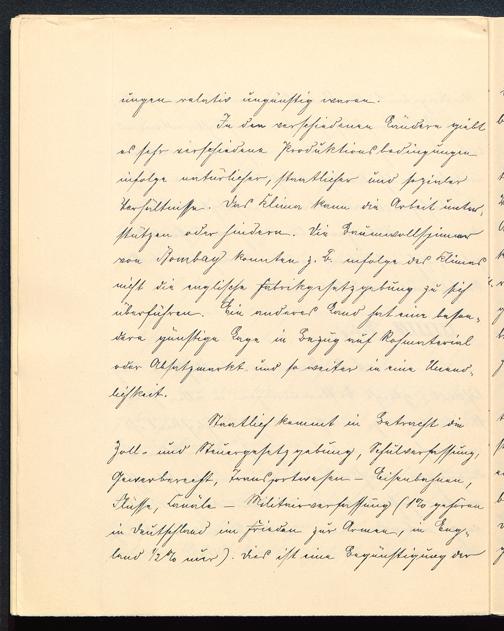 ungen relativ ungünstig waren.
In den verschiedenen Ländern gibt
es sehr verschiedene Produktionsbedingungen
infolge natürlicher, staatlicher und sozialer
Verhältnisse. Das Klima kann die Arbeit unter-
stützen oder hindern. Die Baumwollspinner
von Bombay konnten z. B. infolge des Klimas
nicht die englische Fabrikgesetzgebung zu sich
überführen. Ein anderes Land hat eine beson-
dere günstige Lage in Bezug auf Rohmaterial
oder Absatzmarkt und so weiter in eine Unend-
lichkeit.
Staatlich kommt in Betracht die
Zoll- und Steuergesetzgebung, Schulverfassung,
Gewerberecht, Transportwesen – Eisenbahnen,
Flüsse, Canäle – Militairverfassung (1% gehören
in Deutschland im Frieden zur Armee, in Eng-
land ½% nur). Dies ist eine Begünstigung der